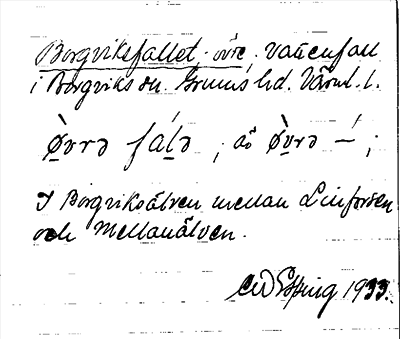 Borgviksfallet, övre, vattenfall
i Borgviks sn. Grums hd. Värml. l.
ø̀vrə fálə, äö ø̀vrə –́;
I Borgviksälven mellan Linforsen
och Mellanälven.
1933.